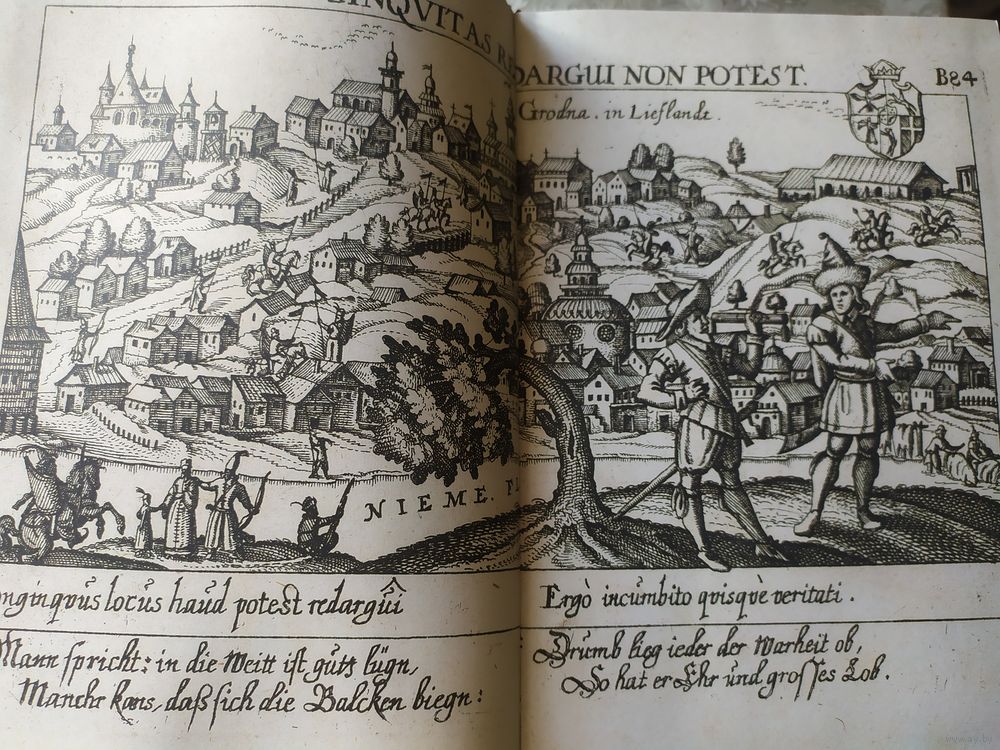 INQVITAS RE
DARGUI NON POTEST.
B84
Grodna. in Lieflandt.
NIEME. FL
nginqvus locus haud potest redargui
Ergò incumbito quisquè veritati.
Mann spricht: in die Weitt ist guth lügn,
Manchr kans, daß sich die Balcken biegn:
Drumb lieg ieder der Warheit ob,
So hat er Ehr und grosses Lob.
www.ay.by